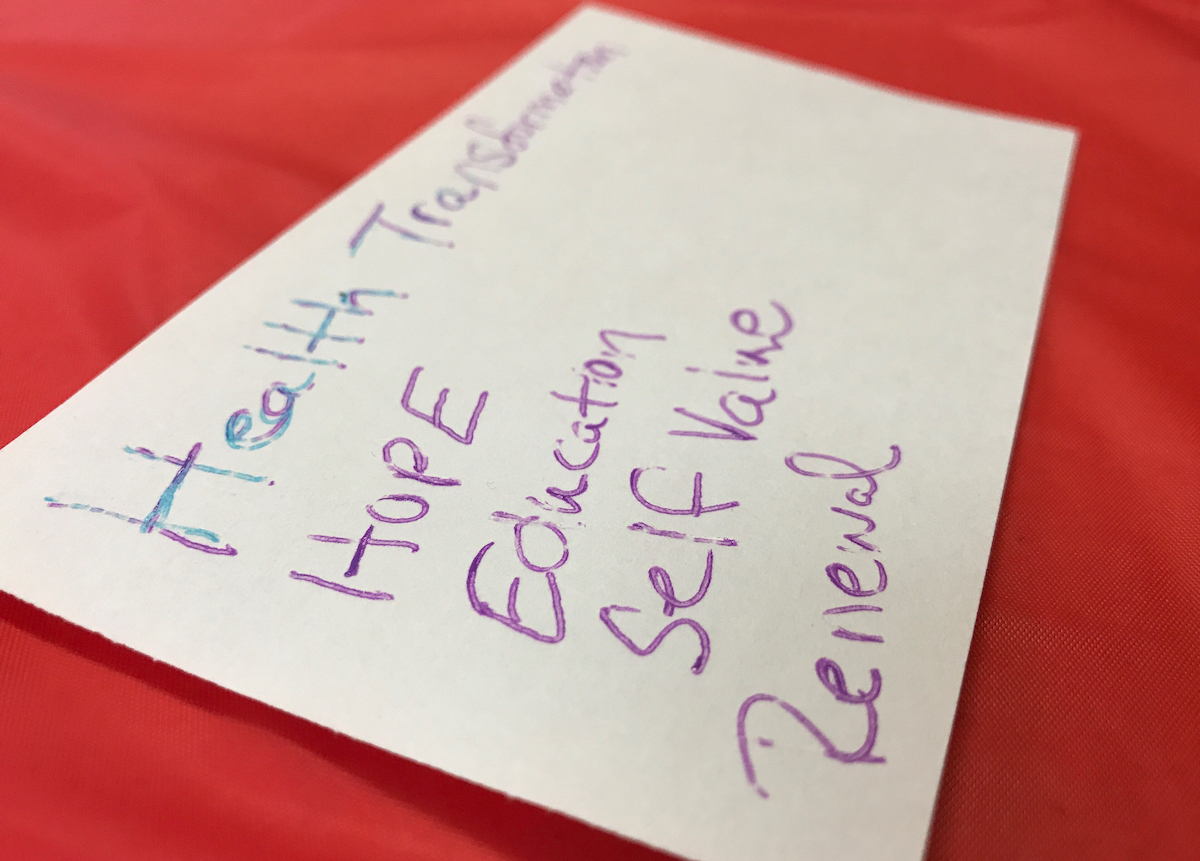 Health Transformation
HOPE
Education
Self Value
Renewal